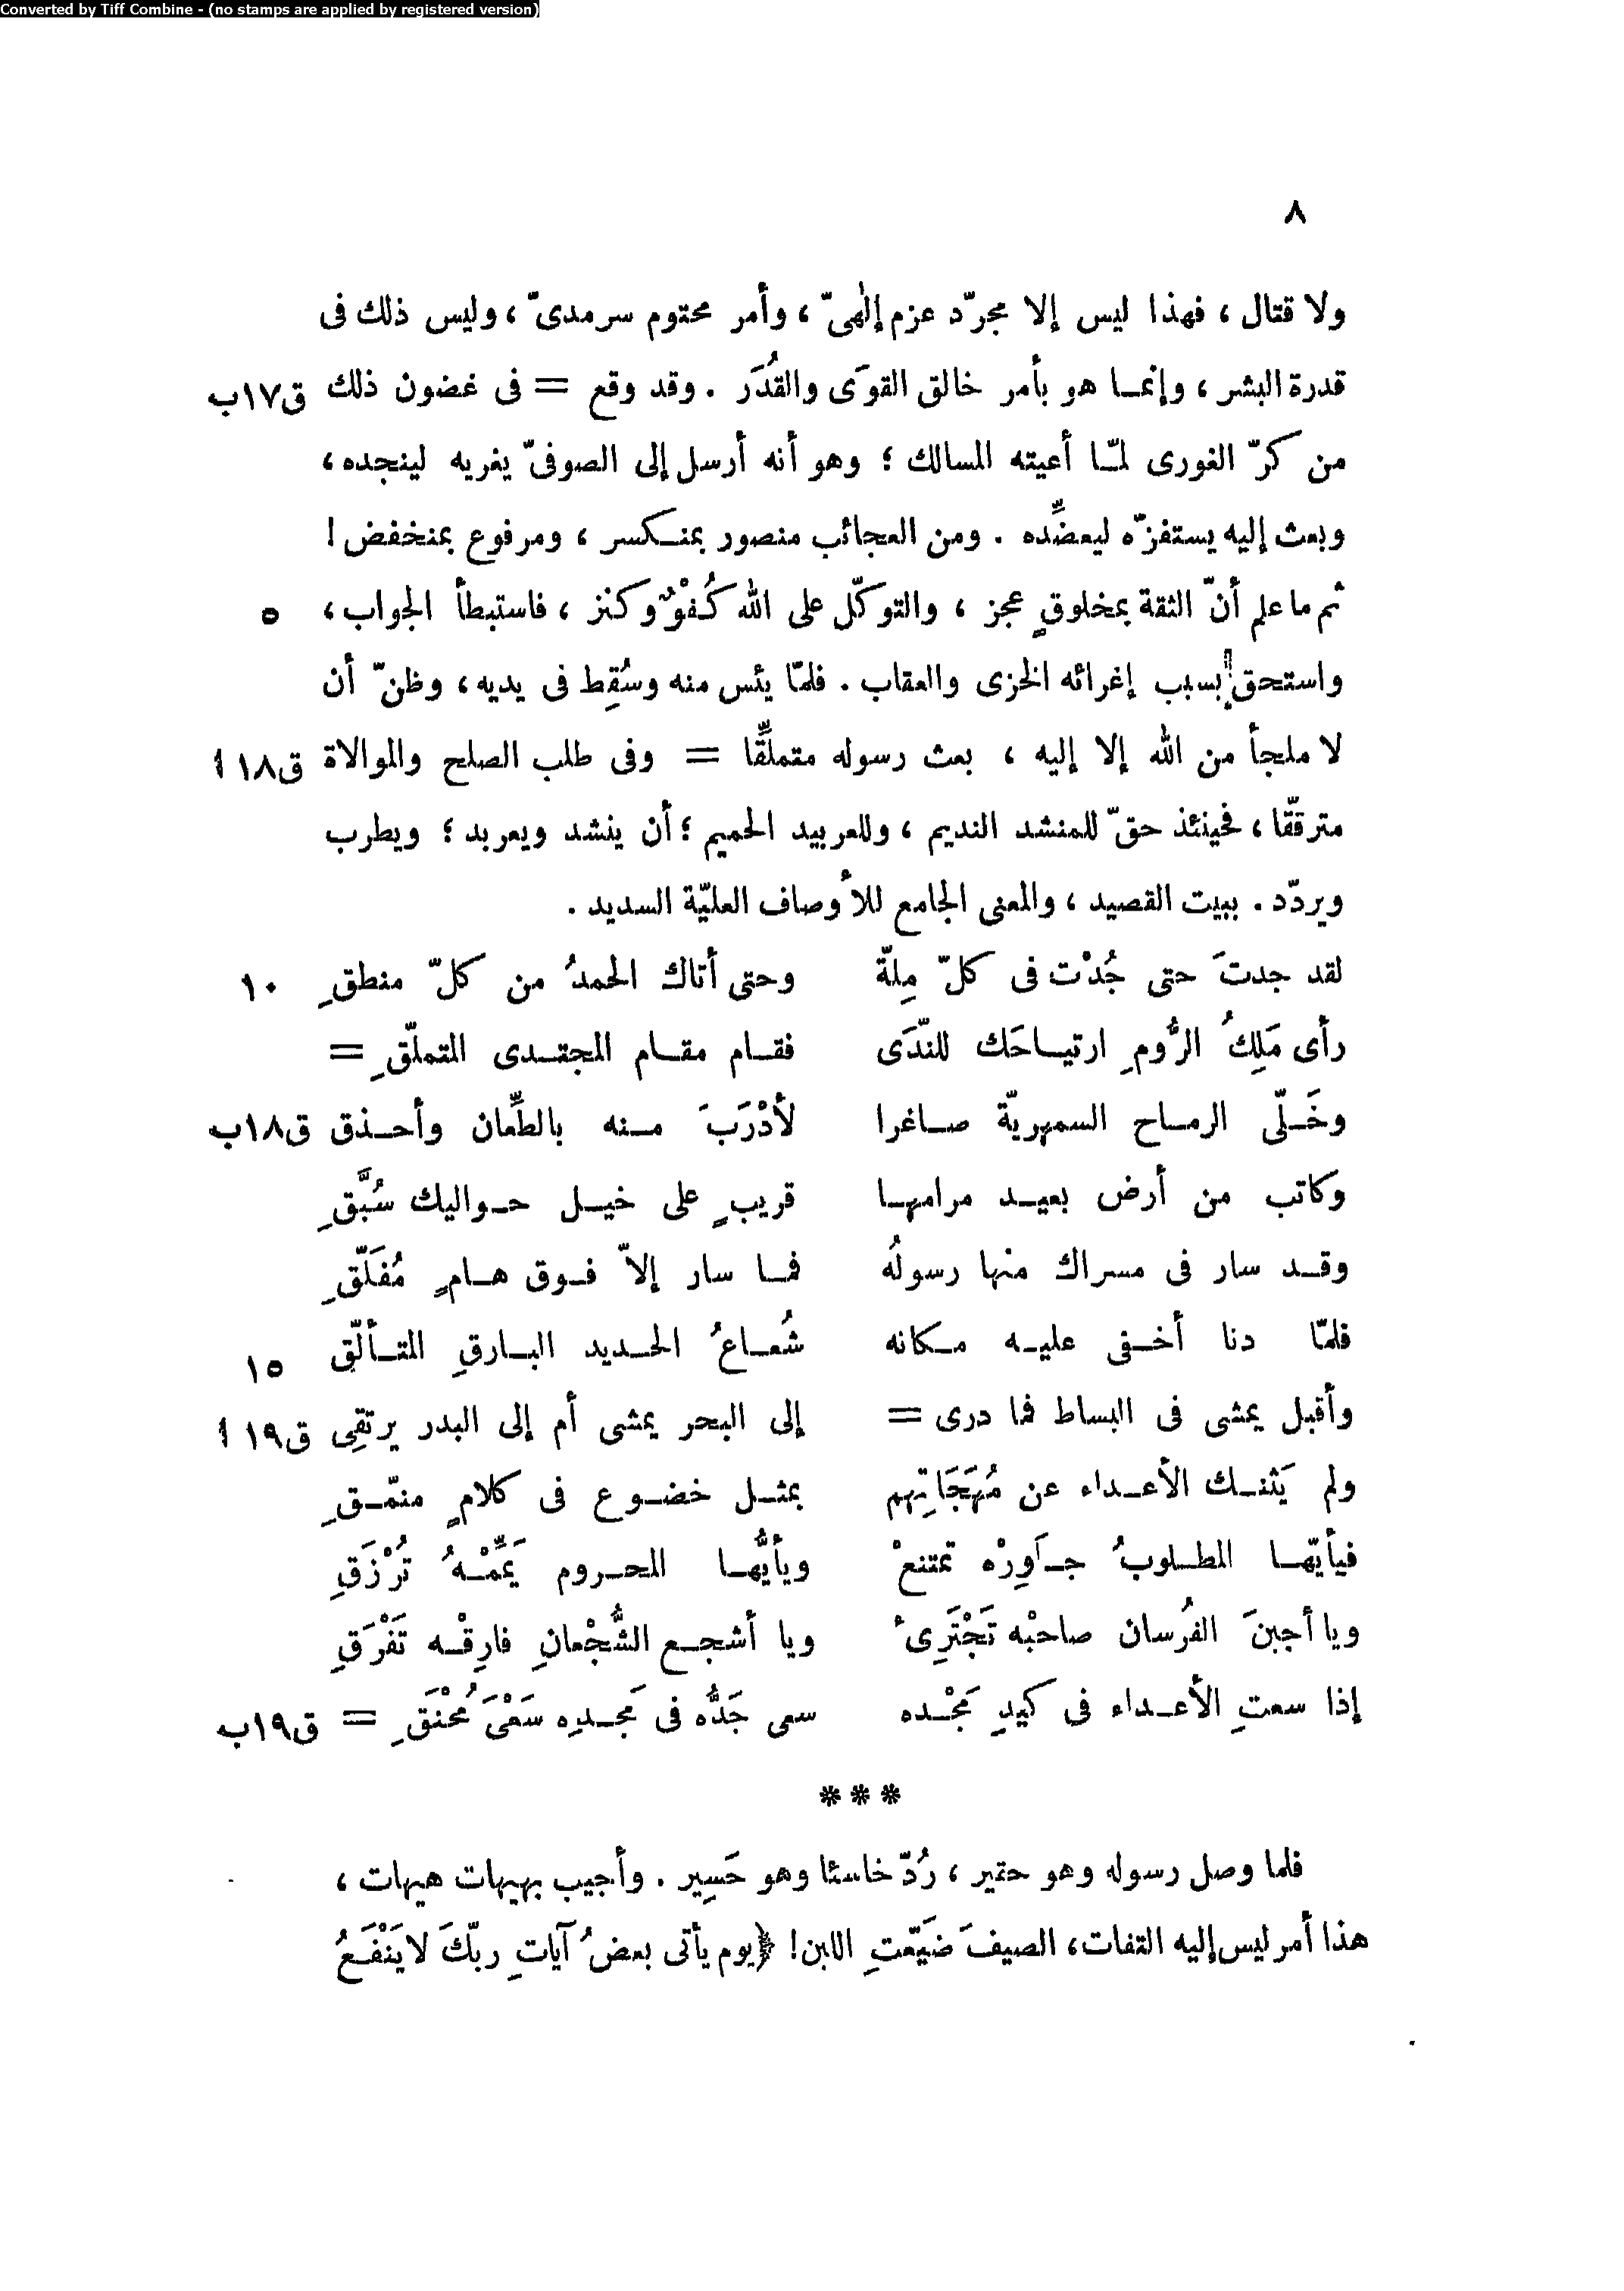 Converted by Tiff Combine - (no stamps are applied by registered version)
٨
ولا قتال ، فهذا ليس إلا مجرّد عزم إلٰهىّ ، وأمر محتوم سرمدىّ ، وليس ذلك فى
قدرة البشر ، وإنمـا هو بأمر خالق القوَى والقُدَر . وقد وقع = فى غضون ذلك ق١٧ب
من كرّ الغورى لمّـا أعيته المسالك ؛ وهو أنه أرسل إلى الصوفىّ يغريه لينجده ،
وبعث إليه يستفزّه ليعضِّده . ومن العجائب منصور بمنـكسر ، ومرفوع بمنخفض !
ثم ما علم أنّ الثقة بمخلوقٍ عجز ، والتوكّل على الله كُفْوٌ وكنز ، فاستبطأ الجواب ، ٥
واستحق بسبب إغرائه الخزى والعقاب . فلمّا يئس منه وسُقِط فى يديه ، وظنّ أن
لا ملجأ من الله إلا إليه ، بعث رسوله متملقِّا = وفى طلب الصلح والموالاة ق١٨ أ
مترققّا ، فحينئذ حقّ للمنشد النديم ، وللعربيد الحميم ؛ أن ينشد ويعربد ؛ ويطرب
ويردّد . ببيت القصيد ، والمعنى الجامع للأوصاف العليّة السديد .
لقد جدتَ حتى جُدْت فى كلّ مِلةّ وحتى أتاك الحمدُ من كلّ منطقِ ١٠
رأى مَلِكُ الرُّومِ ارتيـاحَك للندَّى فقـام مقـام المجتـدى المتملّقِ =
وخَـلّى الرمـاح السمهريّة صـاغرا لأدْرَبَ مـنه بالطِّعان وأحـذق ق١٨ب
وكاتب من أرض بعيـد مرامهـا قريبٍ على خيـل حـواليك سُبَّقِ
وقـد سار فى مسراك منها رسولُه فمـا سار إلاّ فـوق هـامٍ مُفَلّقِ
فلمّا دنا أخـفى عليـه مـكانه شُعـاعُ الحـديد البـارقِ المتـألّق ١٥
وأقبل يمشى فى البساط فما درى = إلى البحر يمشى أم إلى البدر يرتقِى ق١٩ أ
ولم يَثنـك الأعـداء عن مُهَجَاتِهم بمثـل خضـوع فى كلامٍ منمّـقِ
فيأيّهـا المطـلوبُ جـاَوِرْه تمتنعْ ويأيُّهـا المحـروم يَمِّمْـهُ تُرْزَقِ
ويا أجبنَ الفُرسان صاحبْه تَجْتَرِئْ ويا أشجـع الشُّجْعانِ فارِقْـه تَفْرَقِ
إذا سعتِ الأعـداء فى كيدِ مَجْـده سعى جَدُّه فى مَجـدِه سَعْىَ مُحْنَقِ = ق١٩ب
* * *
فلما وصل رسوله وهو حقير ، رُدّ خاسئا وهو حَسِير . وأجيب بهيهات هيهات ،
هذا أمر ليس إليه التفات ، الصيفَ ضَيّعتِ اللبن ! ﴿يوم يأتى بعضُ آياتِ ربّكَ لا يَنْفَعُ